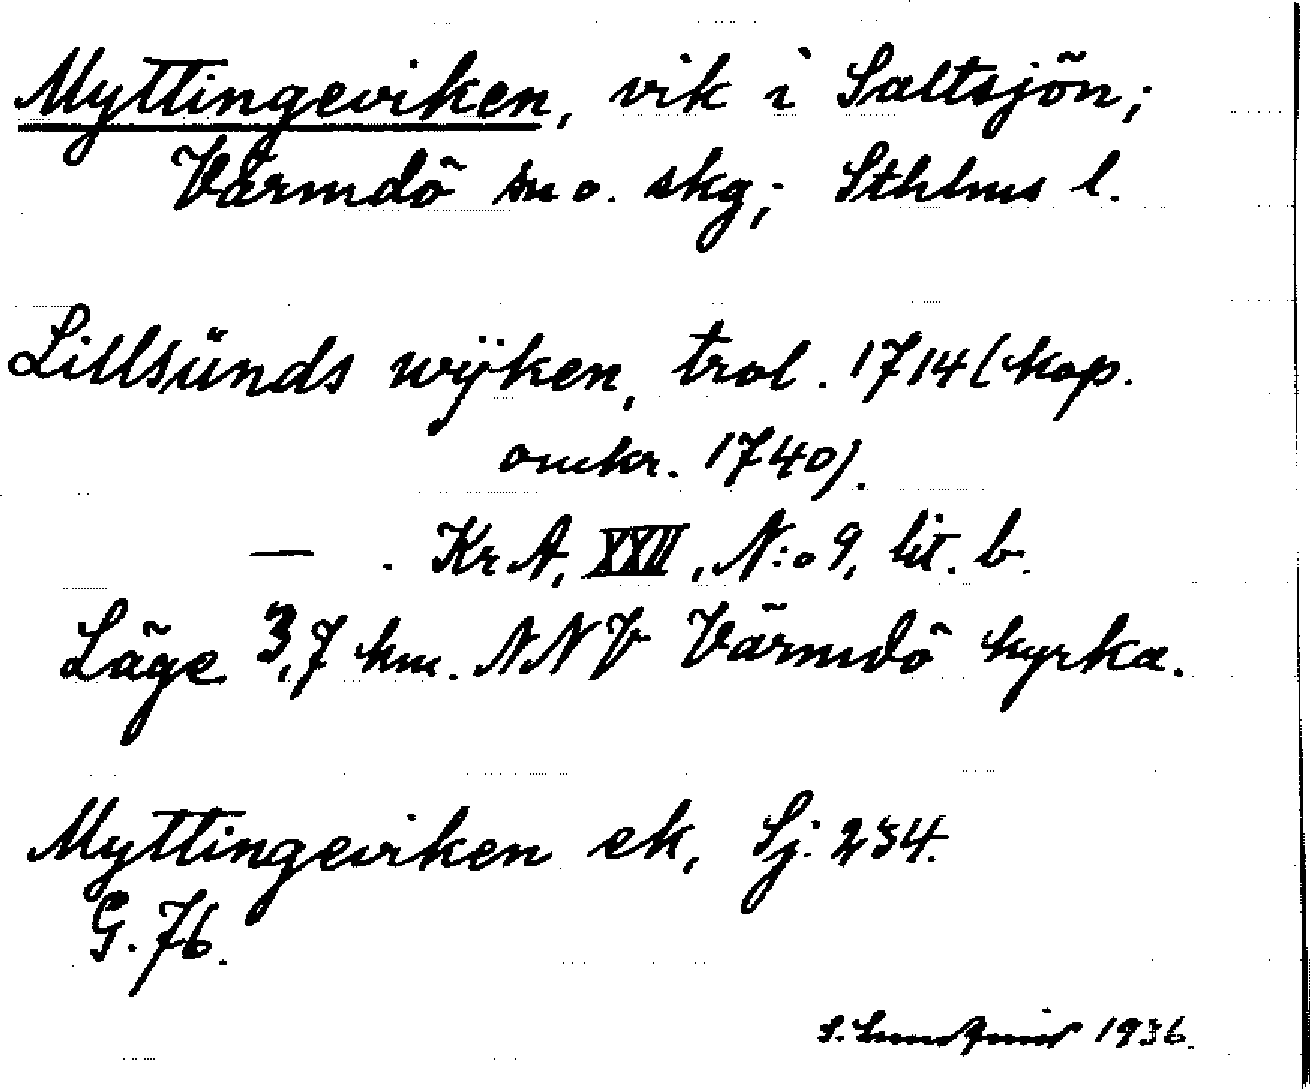 Myttingeviken, vik i Saltsjön;
Värmdö sn o. skg; Sthlms l.
Lillsünds wÿken, trol. 1714 (kop.
omkr. 1740).
— . KrA, XXII, N:o 9, lit. b.
Läge 3,7 km. NNV Värmdö kyrka.
Myttingeviken ek, Sj. 234.
G. 76.
S. Lundqvist 1936.